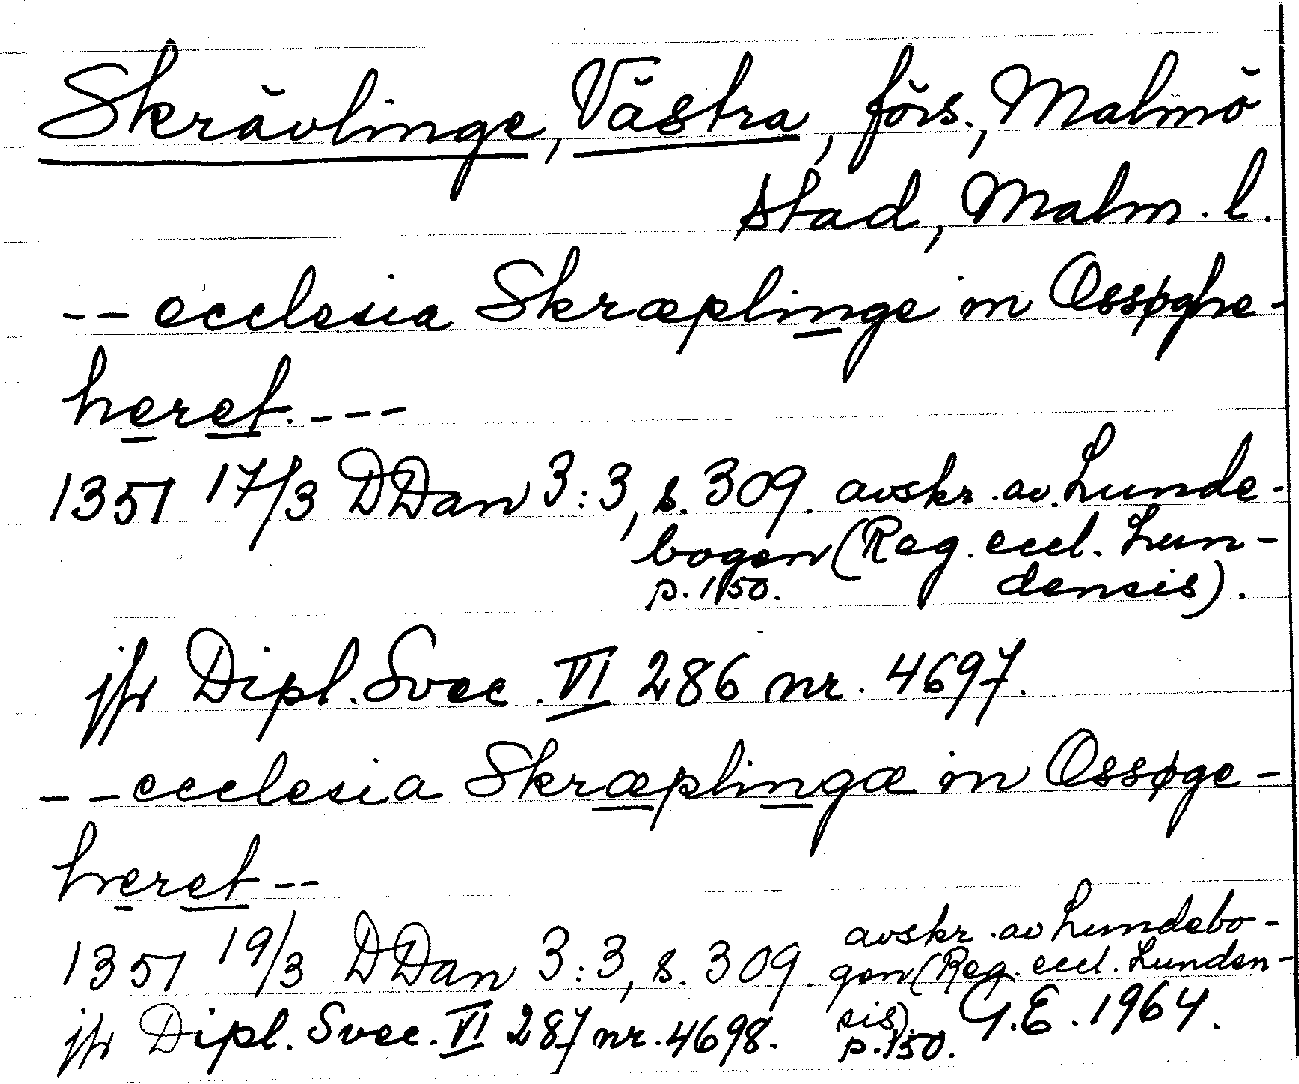 Skrävlinge, Västra, förs., Malmö
stad, Malm. l.
-- ecclesia Skræplinge in Ossøghe-
heret. ---
1351 17/3 DDan 3:3, s. 309. avskr. av Lunde-
bogen (Reg. eccl. Lun-
p. 150. densis).
jfr Dipl. Svec. VI 286 nr. 4697.
-- ecclesia Skræplingæ in Ossøge-
heret --
1351 19/3 DDan 3:3, s. 309. avskr. av Lundebo-
gen (Reg. eccl. Lunden-
jfr Dipl. Svec. VI 287 nr. 4698. sis). G.E. 1964.
p. 150.